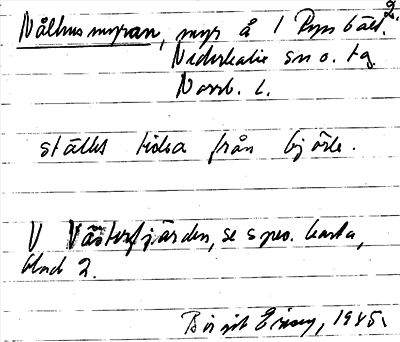 Nålhusmyran, myr å 1
Nederkalix sn o. tg
Norrb. l.
ställt tidea från björle.
V Västerfjärden, se spec. karta,
blad 2.
Birgit Ersey, 1945.